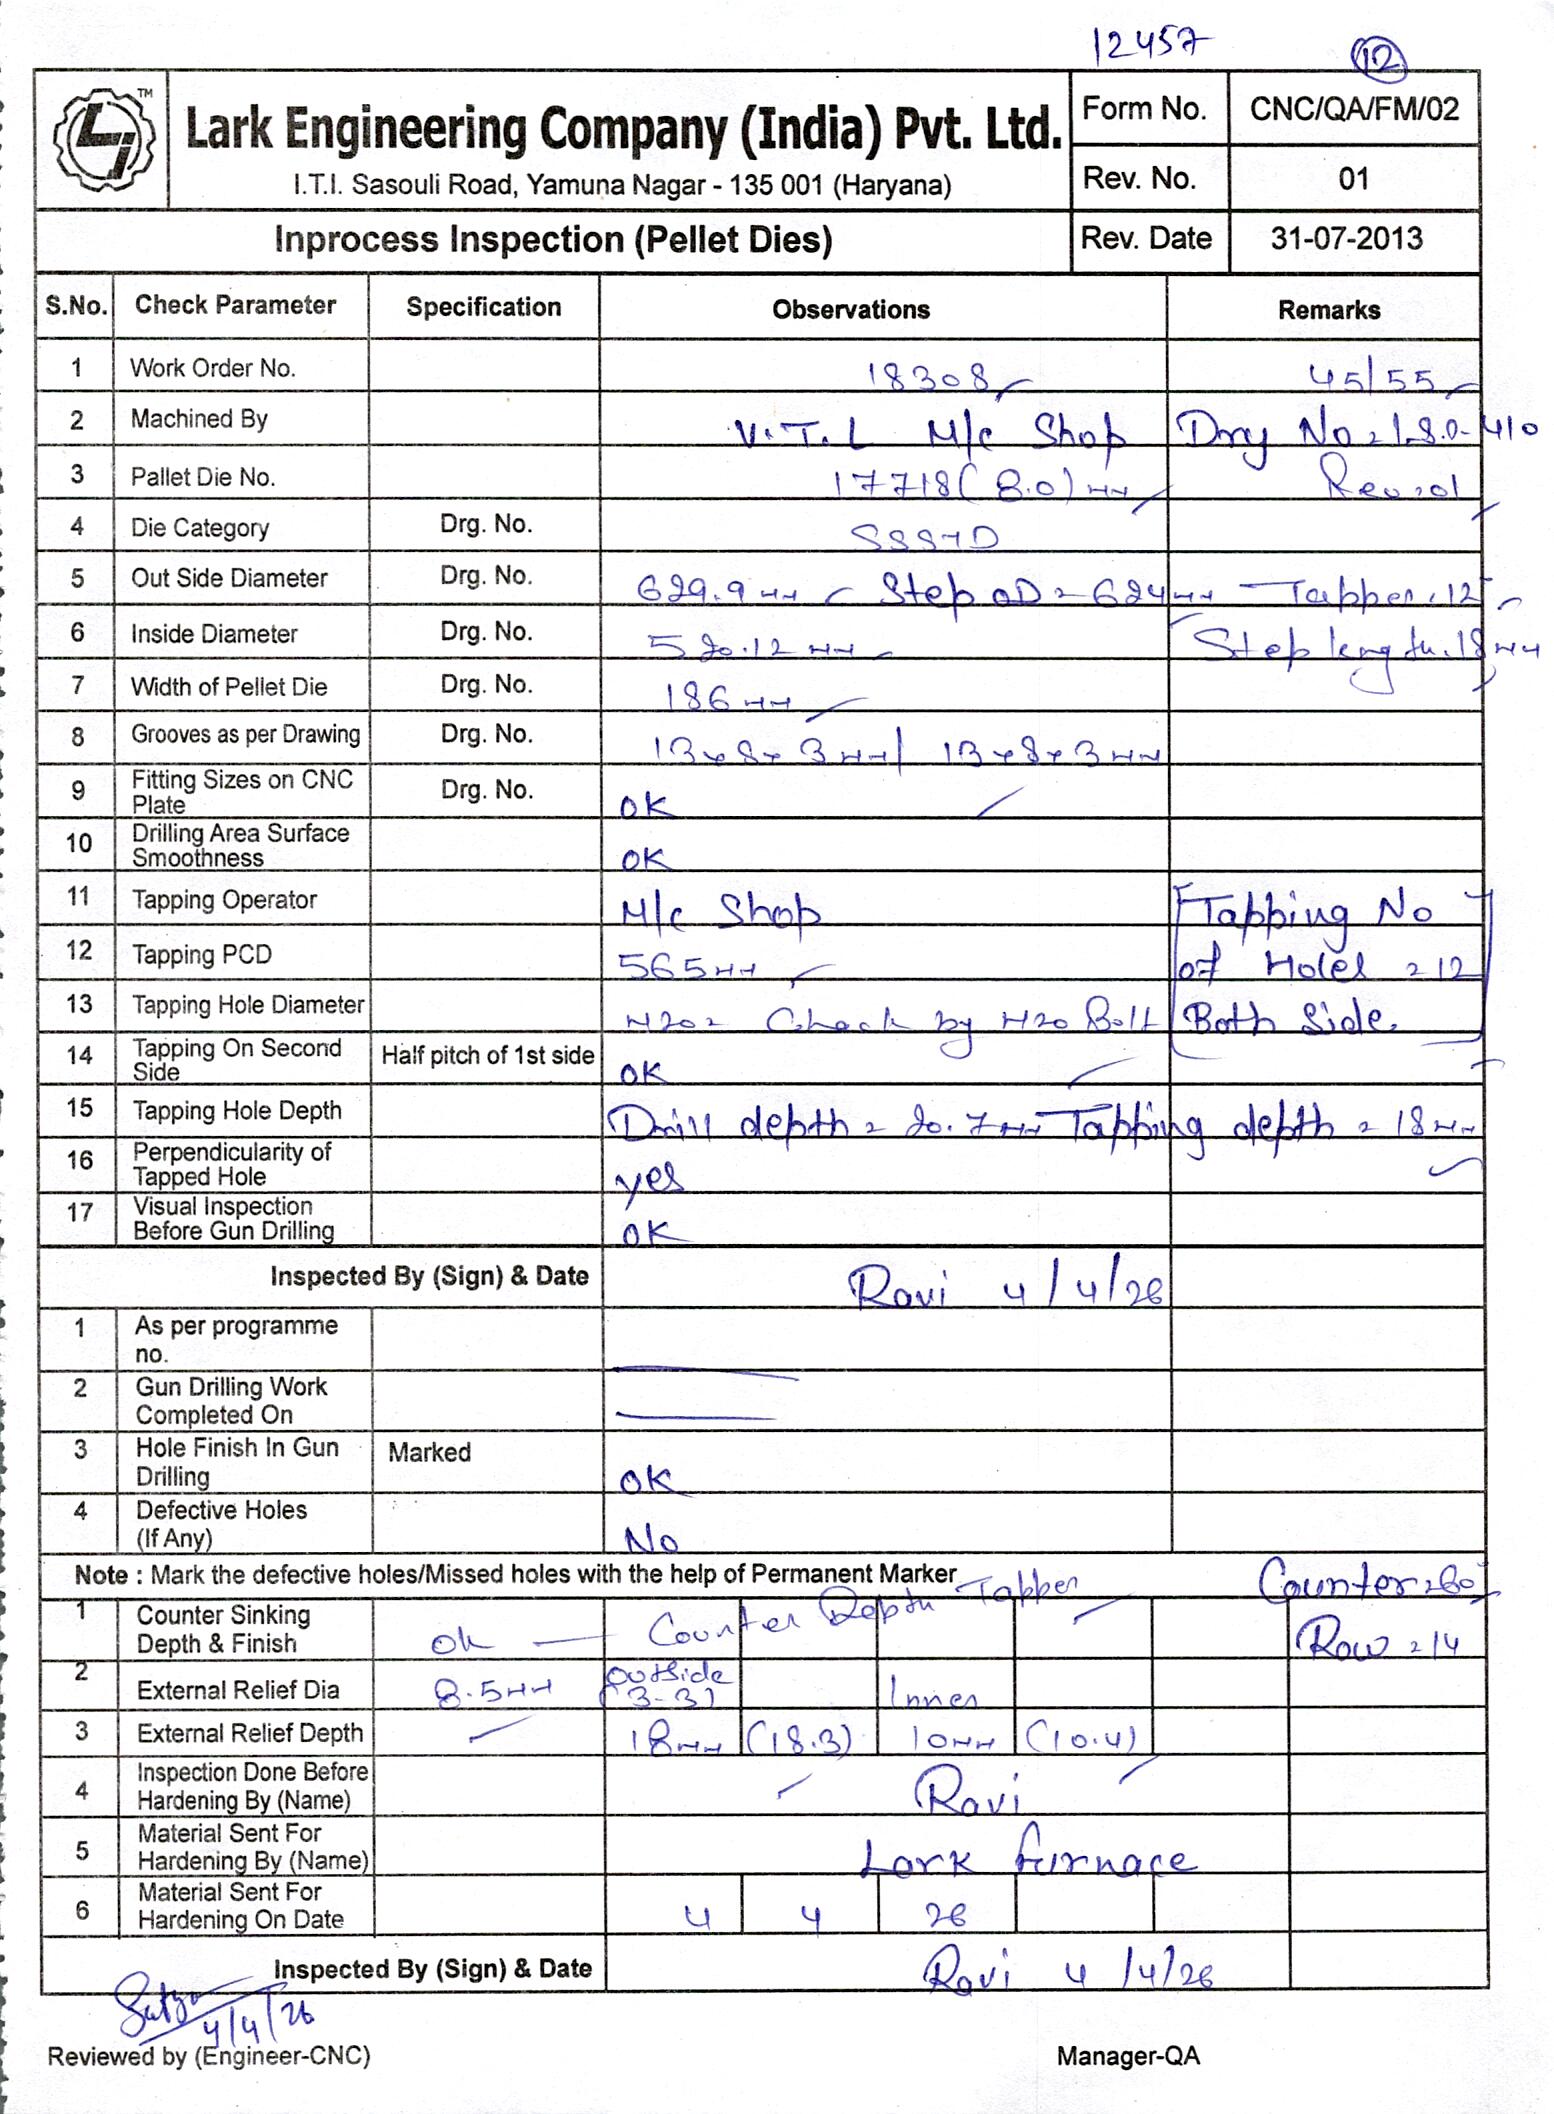 12457 12
TM
Lark Engineering Company (India) Pvt. Ltd.
I.T.I. Sasouli Road, Yamuna Nagar - 135 001 (Haryana)
Form No. CNC/QA/FM/02
Rev. No. 01
Inprocess Inspection (Pellet Dies) Rev. Date 31-07-2013
S.No. Check Parameter Specification Observations Remarks
1 Work Order No. 18308 45/55
2 Machined By V.T.L M/c Shop Drg No = 1.8.0-410
3 Pallet Die No. 17718 (8.0) mm Rev:01
4 Die Category Drg. No. SSSTD
5 Out Side Diameter Drg. No. 629.9 mm Step OD = 624 mm Tapper. 12°
6 Inside Diameter Drg. No. 520.12 mm Step length. 18 mm
7 Width of Pellet Die Drg. No. 186 mm
8 Grooves as per Drawing Drg. No. 13x8x3 mm / 13x8x3 mm
9 Fitting Sizes on CNC Plate Drg. No. OK
10 Drilling Area Surface Smoothness OK
11 Tapping Operator M/c Shop Tapping No
12 Tapping PCD 565 mm of Holes = 12
13 Tapping Hole Diameter M20 = Check by M20 Bolt Both Side.
14 Tapping On Second Side Half pitch of 1st side OK
15 Tapping Hole Depth Drill depth = 20.7 mm Tapping depth = 18 mm
16 Perpendicularity of Tapped Hole yes
17 Visual Inspection Before Gun Drilling OK
Inspected By (Sign) & Date Ravi 4/4/26
1 As per programme no.
2 Gun Drilling Work Completed On
3 Hole Finish In Gun Drilling Marked OK
4 Defective Holes (If Any) No
Note : Mark the defective holes/Missed holes with the help of Permanent Marker Counter = 60°
1 Counter Sinking Depth & Finish ok — Counter Depth Tapper Row = 14
2 External Relief Dia 8.5 mm Outside (3-3) Inner
3 External Relief Depth 18 mm (18.3) 10 mm (10.4)
4 Inspection Done Before Hardening By (Name) Ravi
5 Material Sent For Hardening By (Name) Lark furnace
6 Material Sent For Hardening On Date 4 4 26
Inspected By (Sign) & Date Ravi 4/4/26
Satya 4/4/26
Reviewed by (Engineer-CNC) Manager-QA